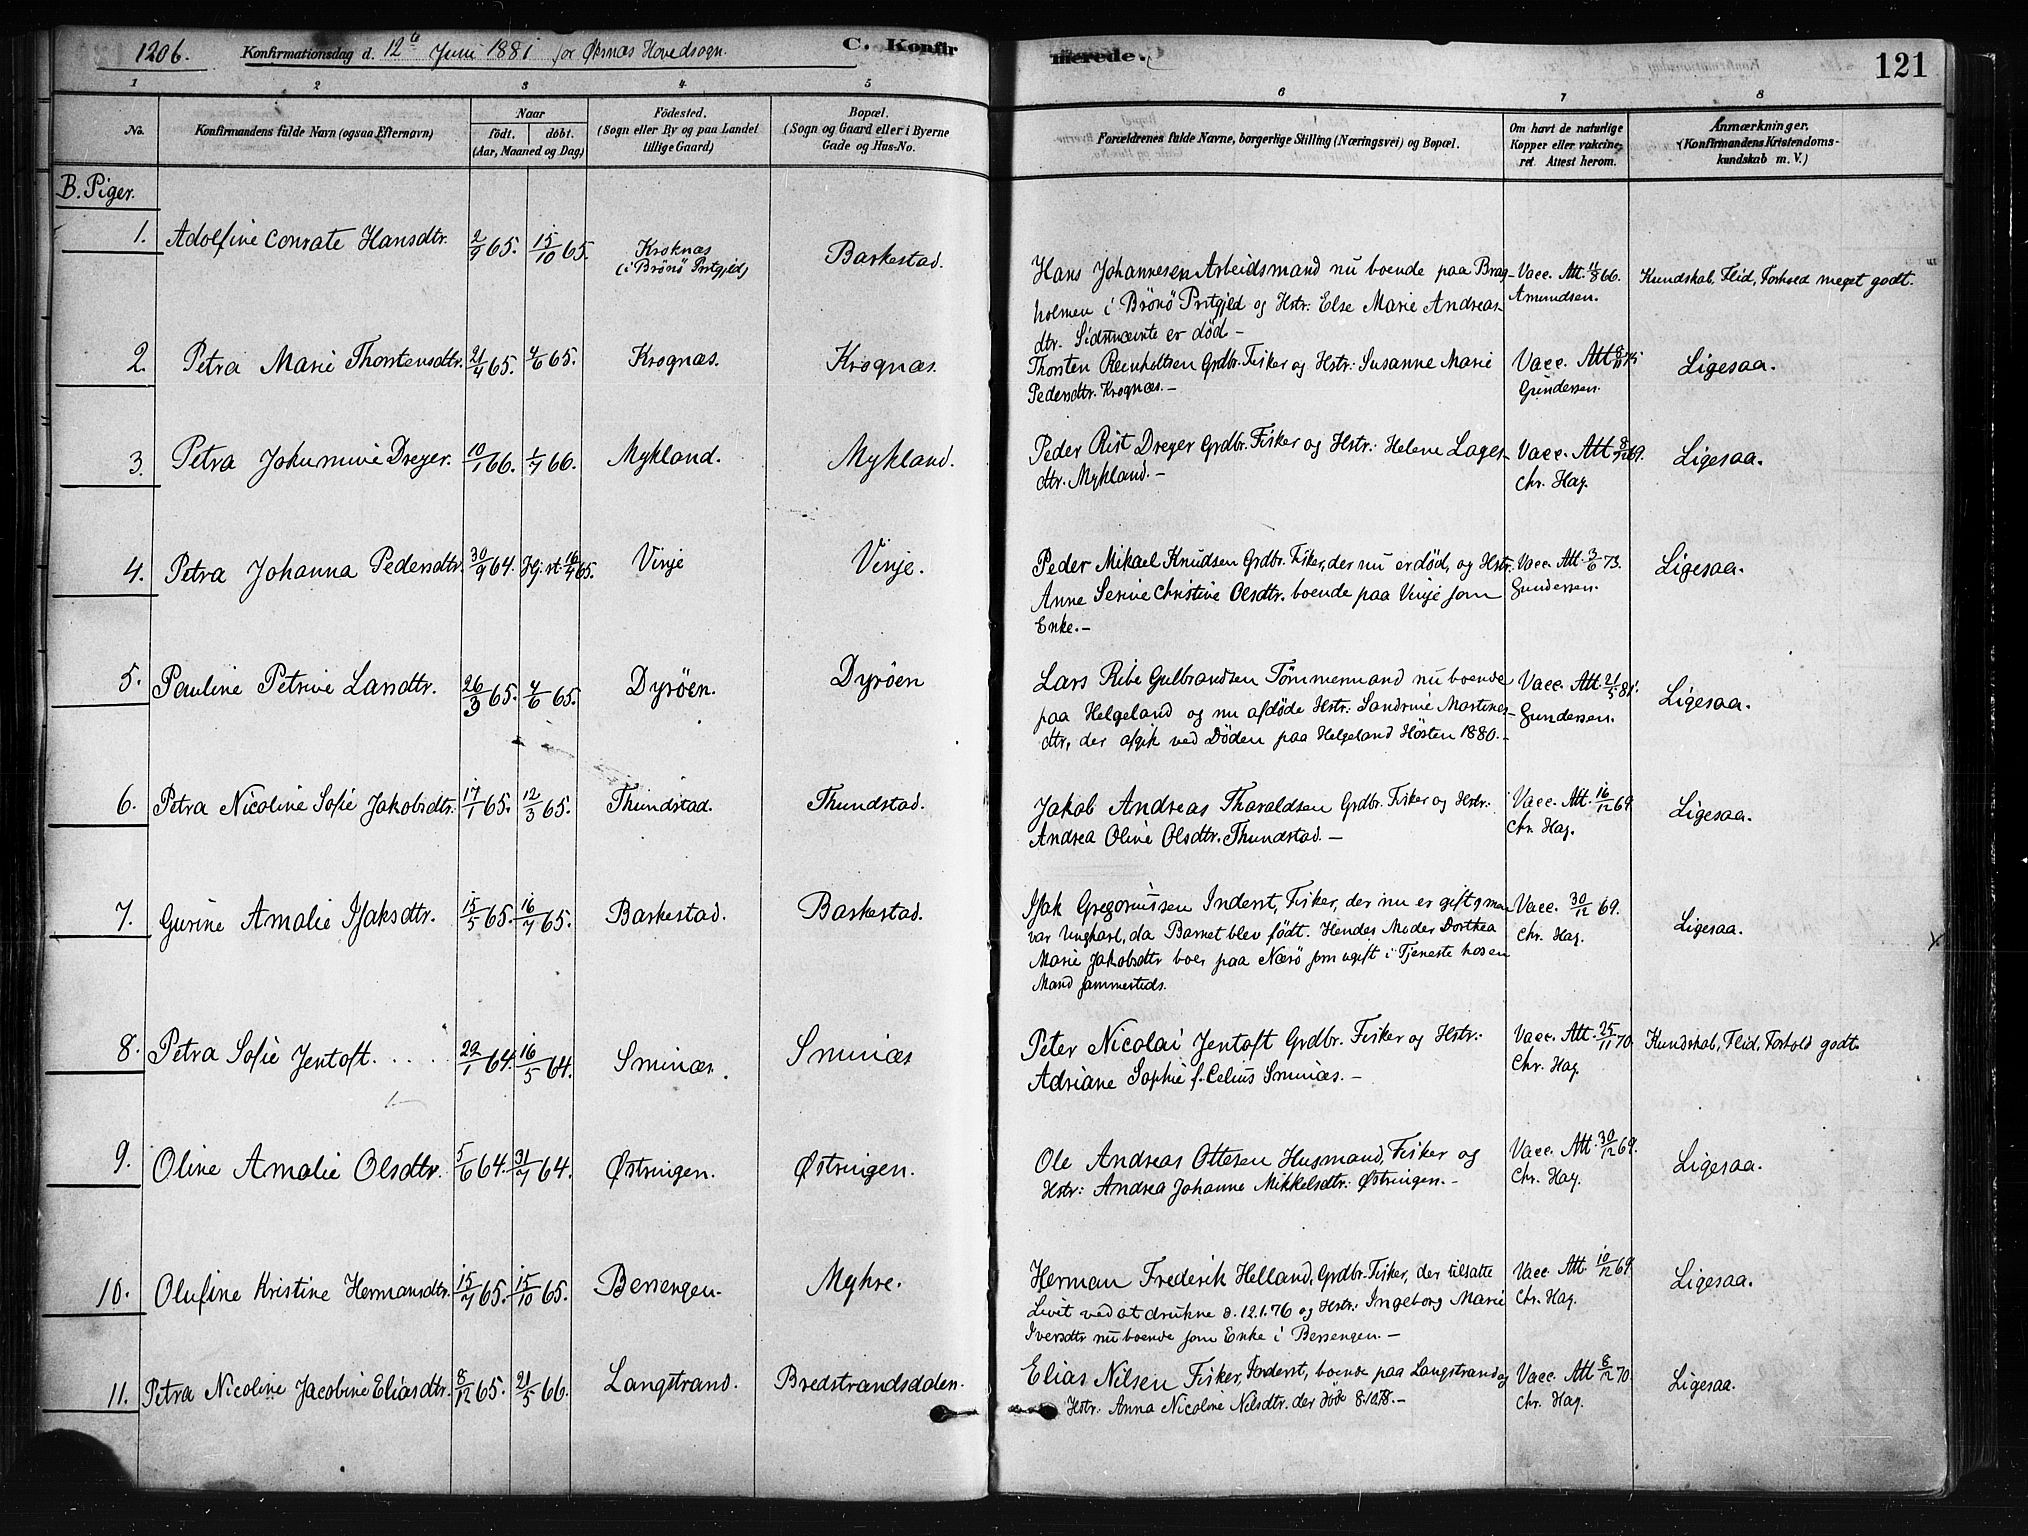 120b. Konfirmationsdag d. 12te Juni 1881 for Øksnæs Hovedsogn. C. Konfirmerede. 121
1 2 3 4 5 6 7 8
No. Konfirmandens fulde Navn (ogsaa Efternavn) Naar födt. döbt. (Aar, Maaned og Dag) Födested. (Sogn eller By og paa Landet tillige Gaard) Bopæl. (Sogn og Gaard eller i Byerne Gade og Hus-No. Forældrenes fulde Navne, borgerlige Stilling (Næringsvei) og Bopæl. Om havt de naturlige Kopper eller vakcineret. Attest herom. Anmærkninger. (Konfirmandens Kristendomskundskab m. V.)
B. Piger.
1. Adolfine Conrate Hansdtr. 2/9 65. 15/10 65. Kroknæs (i Brönö Prstgjeld) Barkestad. Hans Johannesen Arbeidsmand nu boende paa Brag-
holmen i Brönö Prstgjeld og Hstr: Else Marie Andreas-
dtr. Sidstnævnte er död.-
Vacc. Att. 11/8 66. Amundsen. Kundskab, Flid, Forhold meget godt.
2. Petra Marie Thorstensdtr. 21/4 65. 4/6 65. Krognæs. Krognæs. Thorsten Reinholtsen Grdbr. Fisker og Hstr: Susanne Marie
Pedersdtr. Krognæs.-
Vacc. Att Gundersen. Ligesaa.
3. Petra Johannine Dreyer. 10/1 66. 1/7 66. Mykland. Mykland. Peder Rist Dreyer Grdbr. Fisker og Hstr: Helene Lages-
dtr. Mykland.-
Vacc. Att 8/12 69. Chr. Hag. Ligesaa.
4. Petra Johanna Pedersdtr. 30/9 64. Hj. st 16/4 65. Vinje Vinje. Peder Mikael Knudsen Grdbr. Fisker, der nu er død, og Hstr:
Anne Serine Christine Olsdtr. boende paa Vinje som
Enke.-
Vacc. Att. 3/6 73. Gundersen. Ligesaa.
5. Pauline Petrine Larsdtr. 26/3 65. 4/6 65. Dyröen. Dyröen Lars Ribe Gulbrandsen Tömmermand nu boende
paa Helgeland og nu afdöde Hstr: Sandrine Martines-
dtr, der afgik ved Döden paa Helgeland Hösten 1880.-
Vacc. Att. 21/5 81. Gundersen. Ligesaa.
6. Petra Nicoline Sofie Jakobsdtr. 17/1 65. 12/3 65. Thundstad. Thundstad. Jakob Andreas Tharaldsen Grdbr. Fisker og Hstr:
Andrea Oline Olsdtr. Thundstad.-
Vacc. Att. 16/12 69. Chr. Hag. Ligesaa.
7. Gurine Amalie Isaksdtr. 15/5 65. 16/7 65. Barkestad. Barkestad. Isak Gregoriussen Inderst, Fisker, der nu er gift, men
var Ungkarl, da Barnet blev födt. Hendes Moder Dorthea
Marie Jakobsdtr boer paa Nærö som ugift i Tjeneste hos en
Mand sammesteds.
Vacc. 30/12 69. Chr. Hag. Ligesaa.
8. Petra Sofie Jentoft. 29/1 64. 16/5 64. Sminæs. Sminæs Peter Nicolai Jentoft Grdbr. Fisker og Hstr:
Adriane Sophie f. Celius Sminæs.-
Vacc. Att. 25/11 70. Chr. Hag. Kundskab, Flid, Forhold godt.
9. Oline Amalie Olsdtr. 5/6 64. 31/7 64. Østringen. Østringen. Ole Andreas Ottesen Husmand, Fisker og
Hstr: Andrea Johanne Mikkelsdtr: Østringen.-
Vacc. Att 30/12 69. Chr. Hag. Ligesaa.
10. Olufine Kristine Hermansdtr. 15/7 65. 15/10 65. Bersengen. Myhre. Herman Frederik Helland, Grdbr. Fisker, der tilsatte
Livit ved at drukne d. 12.1.76 og Hstr: Ingeborg Marie
Iversdtr nu boende som Enke i Bersengen.-
Vacc Att. 10/12 69. Chr. Hag. Ligesaa.
11. Petra Nicoline Jacobine Eliasdtr. 8/12 65. 21/5 66. Langstrand. Bredstrandsdalen. Elias Nilsen Fisker, Inderst, boende paa Langstrand og
Hstr: Anna Nicoline Nilsdtr. der døde
Vacc. Att 8/12 70. Chr. Hag. Ligesaa.